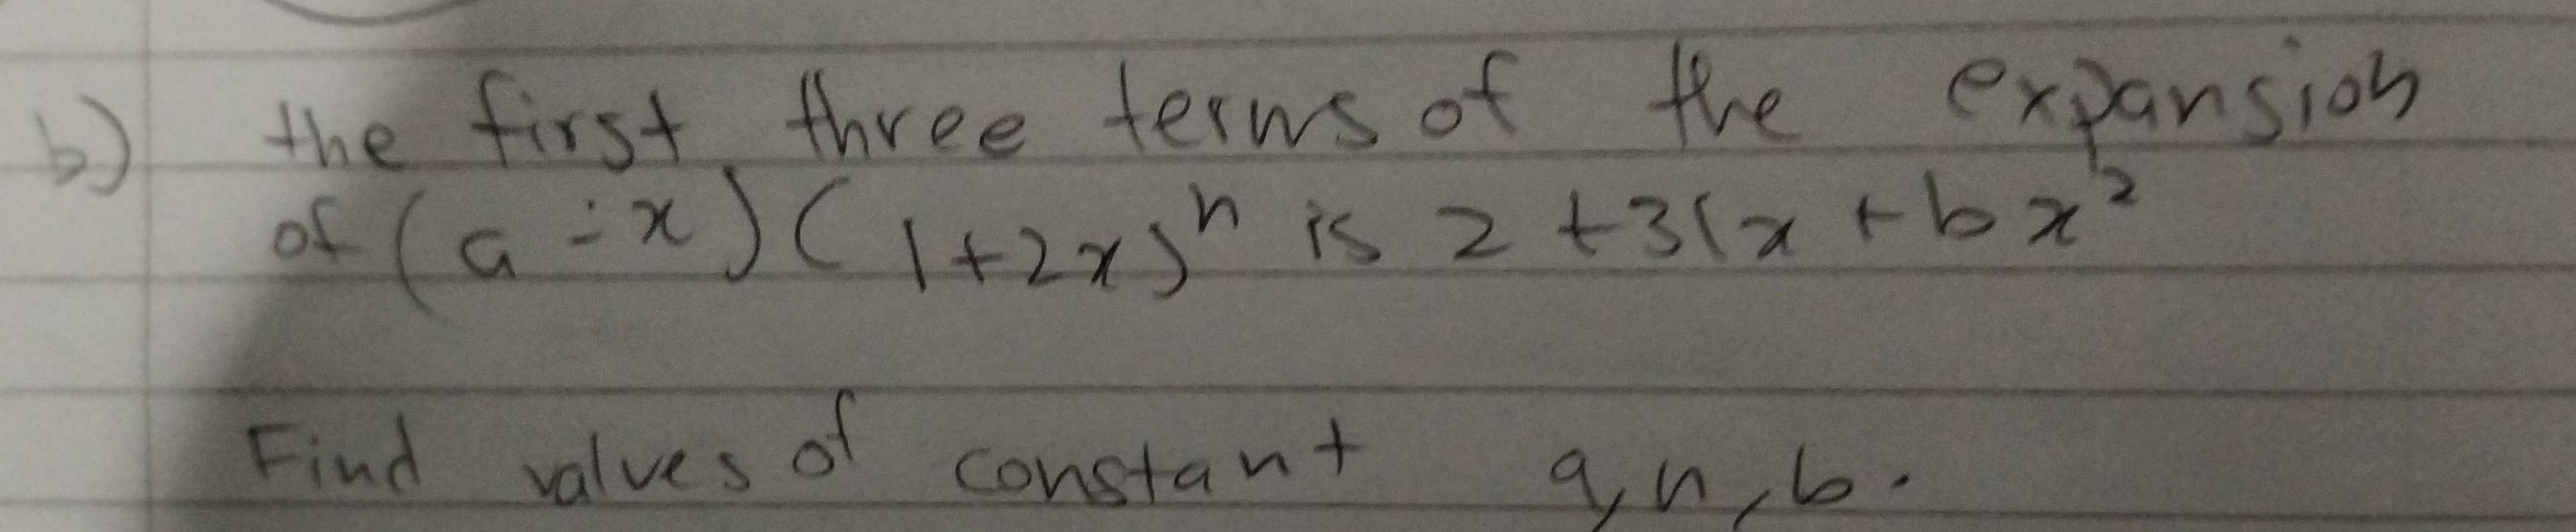 b) the first three terms of the expansion
of (a - x) (1+2x)ⁿ is 2 + 31x + bx²
Find values of constant a, n, b.